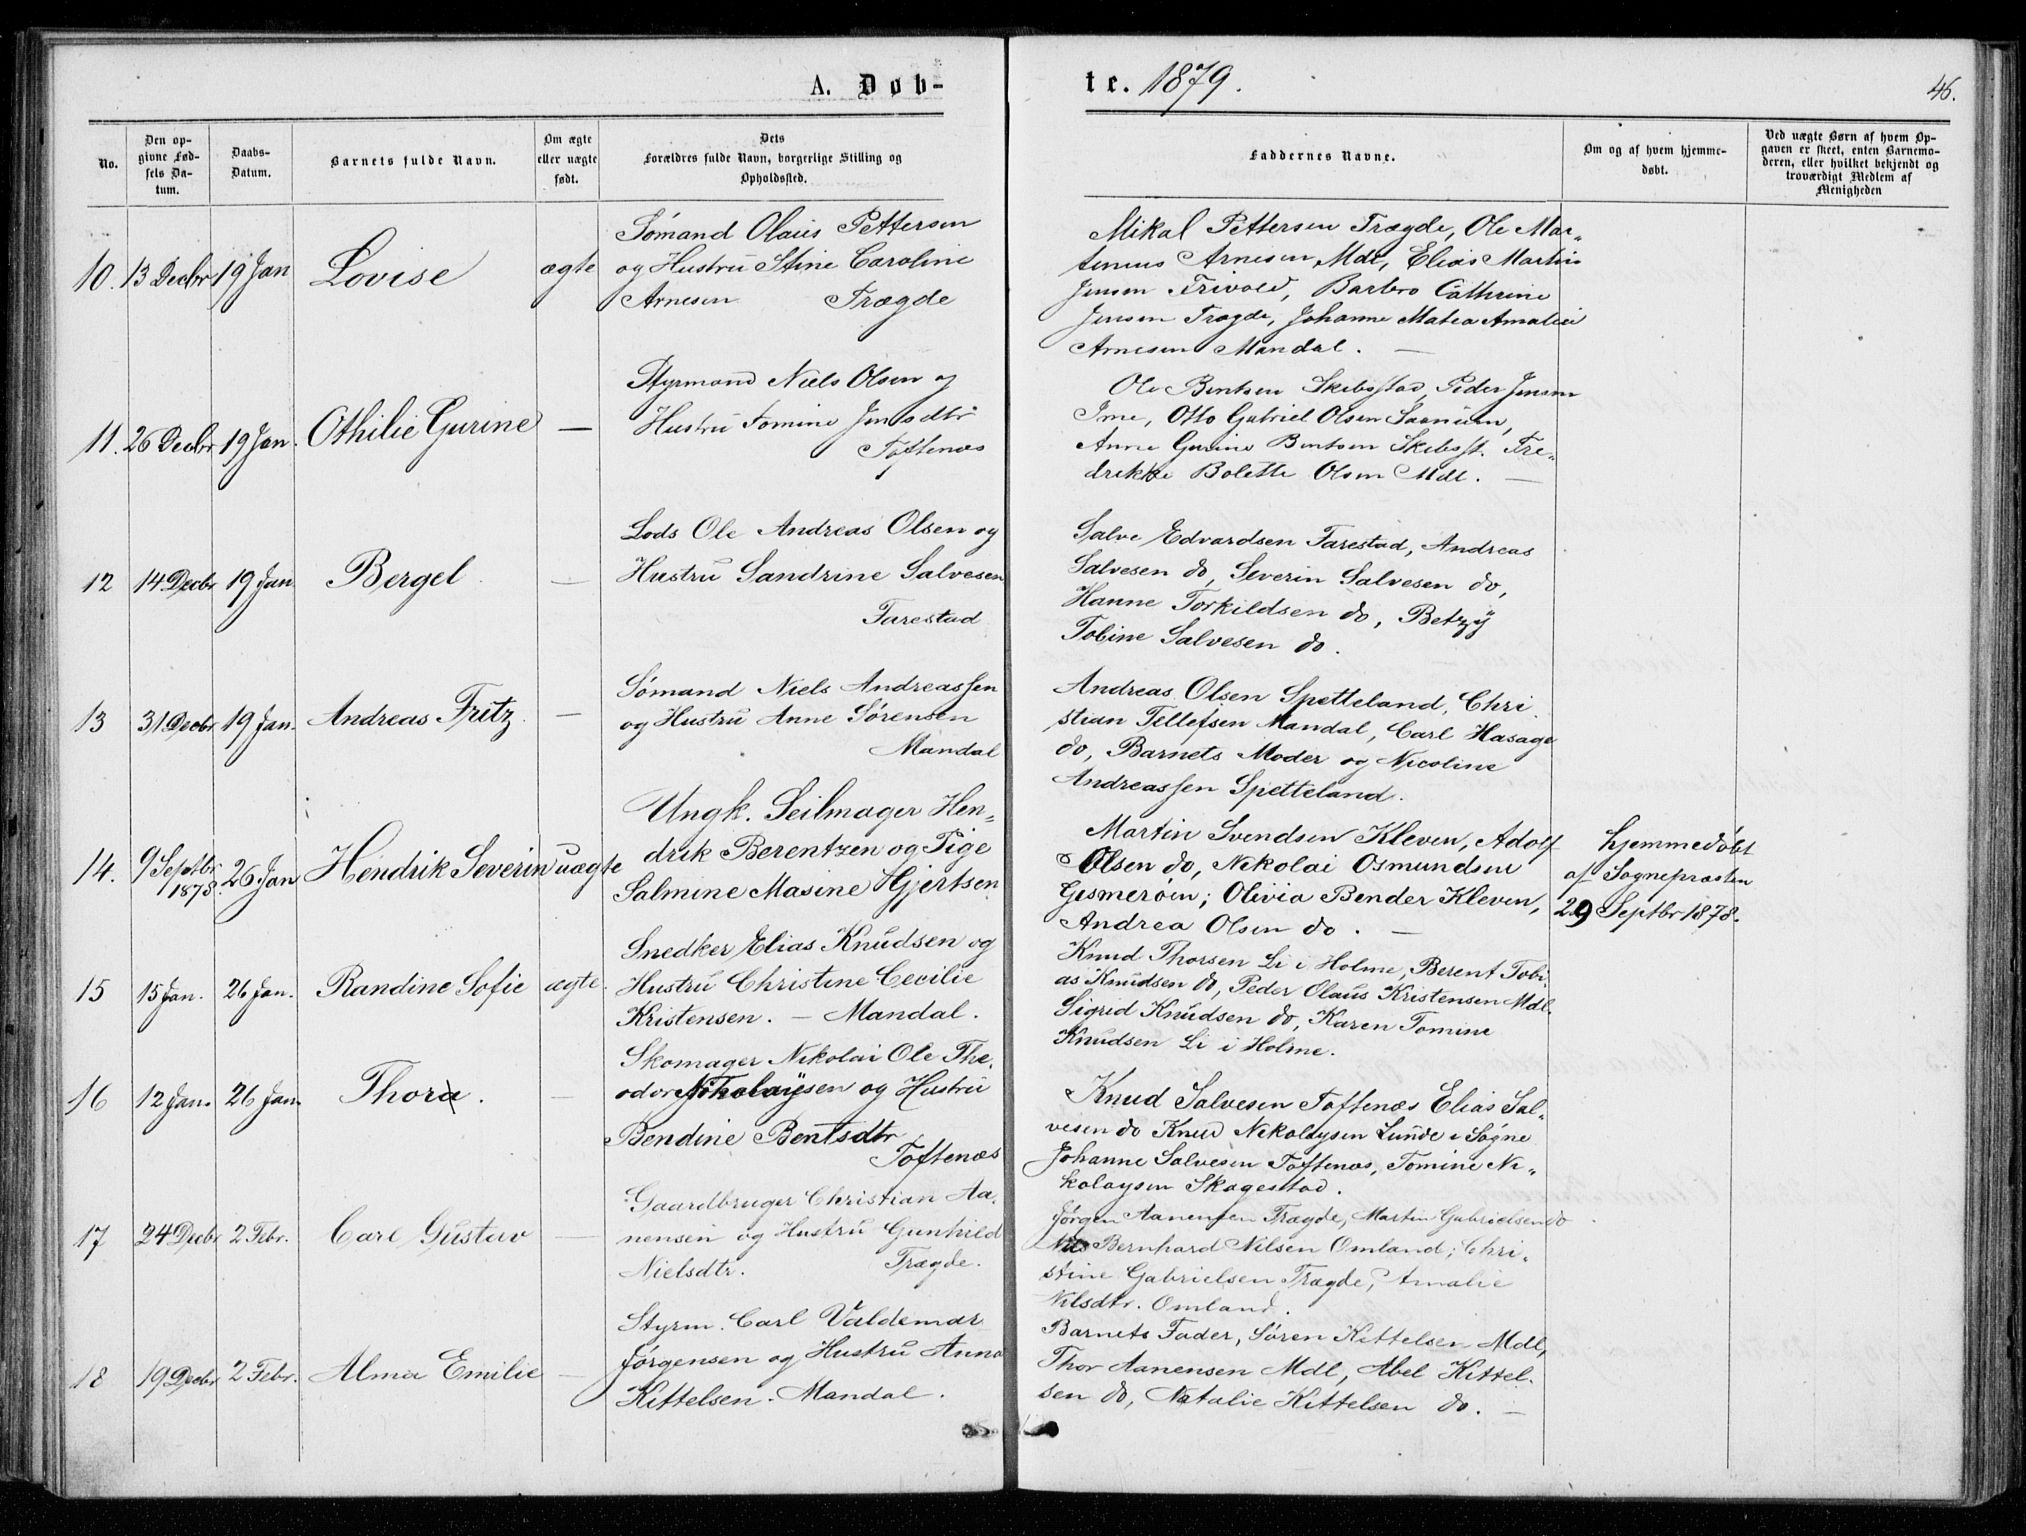 A. Døb-
te. 1879.
46.
No.
Den op-
givne Fød-
sels Da-
tum.
Daabs-
Datum.
Barnets fulde Navn.
Om ægte
eller uægte
født.
Dets
Forældres fulde Navn, borgerlige Stilling og
Opholdssted.
Faddernes Navne.
Om og af hvem hjemme-
døbt.
Ved uægte Børn af hvem Op-
gaven er skeet, enten Barnemo-
deren, eller hvilket bekjendt og
troværdigt Medlem af
Menigheden
10. 13 Decbr 19 Jan Lovise ægte
Sømand Olaus Pettersen
og Hustru Stine Caroline
Arnesen Trægde
Mikal Pettersen Trægde, Ole Mar-
tinius Arnesen Mdl, Elias Martin
Jensen Frivold, Barbro Cathrine
Jensen Trægde, Johanne Matea Amalie
Arnesen Mandal. —
11. 26 Decbr 19 Jan. Othilie Gurine —
Styrmand Niels Olsen og
Hustru Tomine Jensdtr
Toftenæs
Ole Bentsen Skibsstad, Peder Jensen
Ime, Otto Gabriel Olsen Saanum,
Anne Gurine Bentsen Skibsst. Fre-
drikke Bolette Olsen Mdl. —
12 14 Decbr 19 Jan Bergel —
Lods Ole Andreas Olsen og
Hustru Sandrine Salvesen
Farestad
Salve Edvardsen Farestad, Andreas
Salvesen do, Severin Salvesen do,
Hanne Torkildsen do, Betzy
Tobine Salvesen do.
13 31 Decbr 19 Jan. Andreas Fritz. —
Sømand Niels Andreassen
og Hustru Anne Sørensen
Mandal
Andreas Olsen Spetteland, Chri
stian Tellefsen Mandal, Carl Hasage
do, Barnets Moder og Nicoline
Andreassen Spetteland.
14. 9 Septbr 1878. 26 Jan Hendrik Severin uægte
Ungk. Seilmager Hen-
drik Berentzen og Pige
Salmine Masine Gjertsen
Martin Svendsen Kleven, Adolf
Olsen do, Nikolai Osmundsen
Gismerøen; Olivia Bender Kleven,
Andrea Olsen do. —
hjemmedøbt
af Sognepræsten
29 Septbr 1878.
15 15 Jan. 26 Jan. Randine Sofie ægte.
Snedker Elias Knudsen og
Hustru Christine Cecilie
Kristensen. — Mandal.
Knud Thorsen Li i Holme, Berent Tobi-
as Knudsen do, Peder Olaus Kristensen Mdl.
Sigrid Knudsen do, Karen Tomine
Knudsen Li i Holme.
16 12 Jan. 26 Jan. Thora. —
Skomager Nikolai Ole The-
odor Nikolaysen og Hustru
Bendine Bentsdtr
Toftenæs
Knud Salvesen Toftenæs Elias Sal-
vesen do Knud Nikolaysen Lunde i Sogne
Johanne Salvesen Toftenæs, Tomine Ni-
kolaysen Skagestad.
17 24 Decbr 2 Febr. Carl Gustav —
Gaardbruger Christian Aa-
nensen og Hustru Gunhild
Nielsdtr. Trægde.
Jørgen Aanensen Trægde, Martin Gabrielsen do
Bernhard Nilsen Omland; Chri-
stine Gabrielsen Trægde, Amalie
Nilsdtr. Omland.
18 19 Decbr 2 Febr. Alma Emilie —
Styrm. Carl Valdemar
Jørgensen og Hustru Anna
Kittelsen. Mandal.
Barnets Fader, Søren Kittelsen Mdl,
Thor Aanensen Mdl, Abel Kittel-
sen do, Natalie Kittelsen do. —